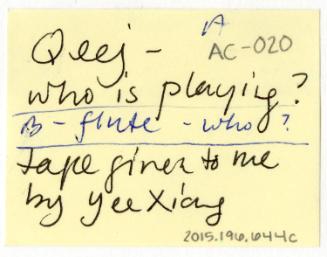 A
AC-020
Qeej -
who is playing?
B - flute - who?
tape given to me
by Yee Xiong
2015.196.644c